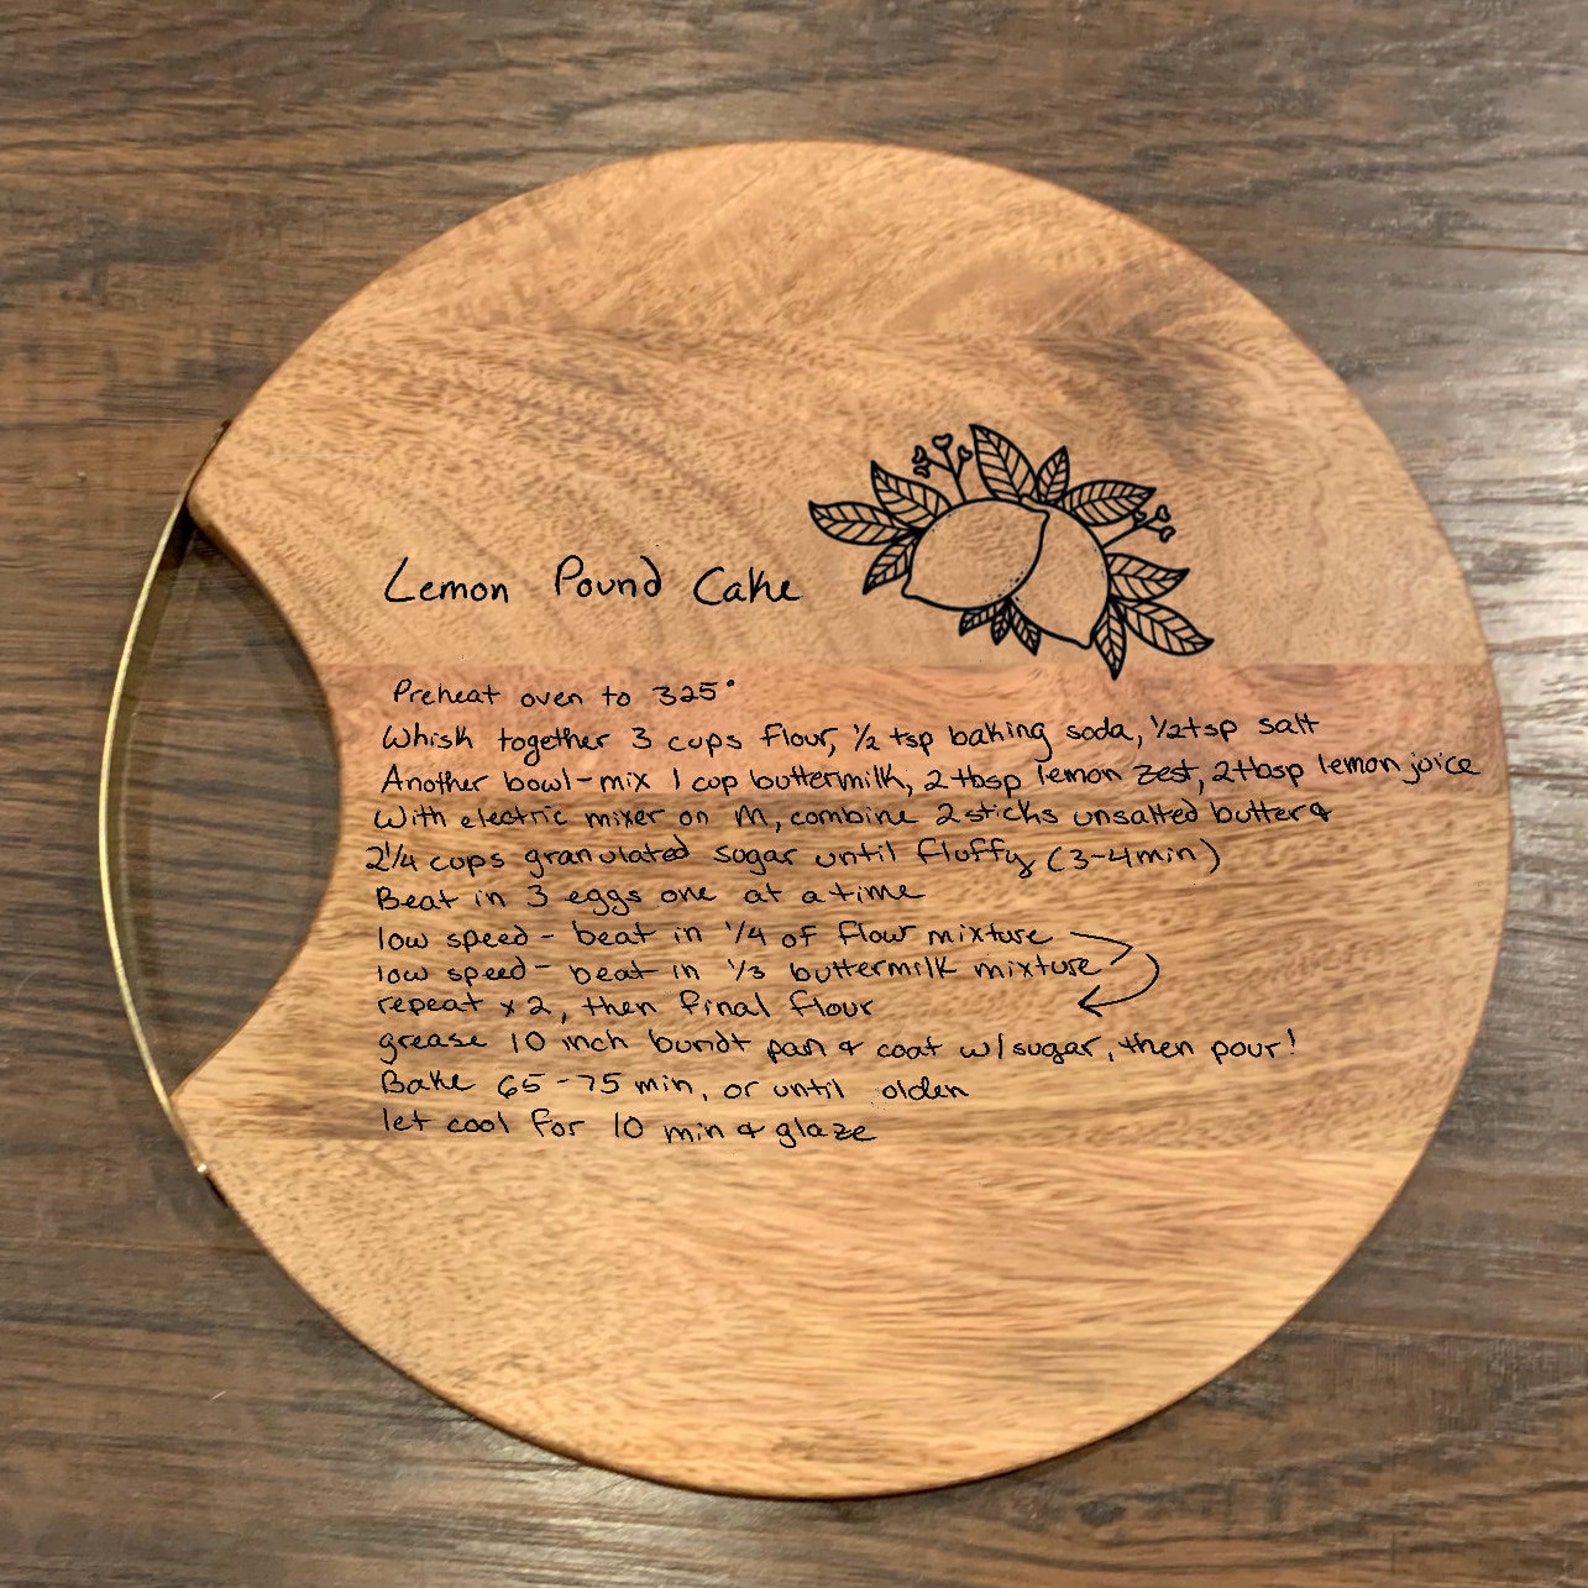 Lemon Pound Cake
Preheat oven to 325°
Whisk together 3 cups flour, 1/2 tsp baking soda, 1/2 tsp salt
Another bowl - mix 1 cup buttermilk, 2 tbsp lemon zest, 2 tbsp lemon juice
With electric mixer on M, combine 2 sticks unsalted butter &
2 1/4 cups granulated sugar until fluffy (3-4 min)
Beat in 3 eggs one at a time
low speed - beat in 1/4 of flour mixture
low speed - beat in 1/3 buttermilk mixture
repeat x 2, then final flour
grease 10 inch bundt pan & coat w/ sugar, then pour!
Bake 65-75 min, or until olden
let cool for 10 min & glaze